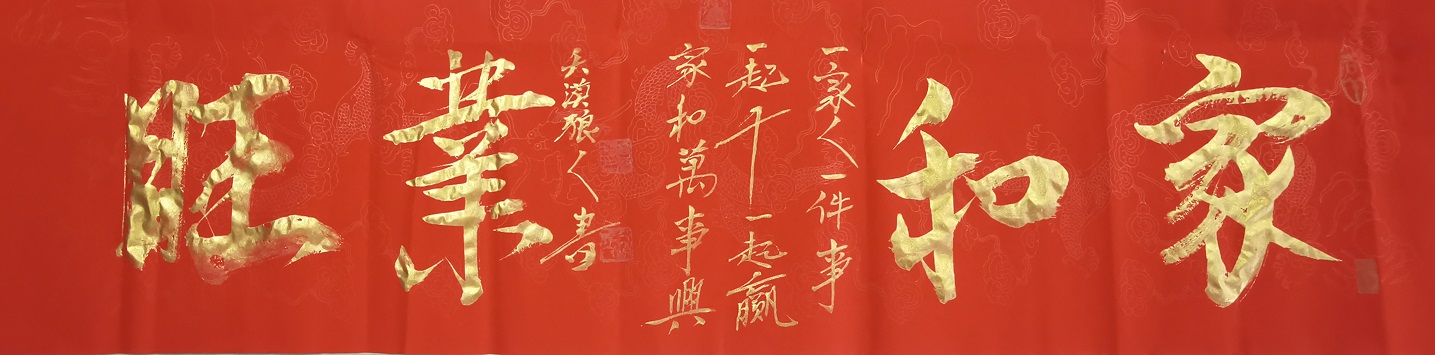 家和
一家人一件事
一起干一起赢
家和萬事興
業旺
大漠狼人書